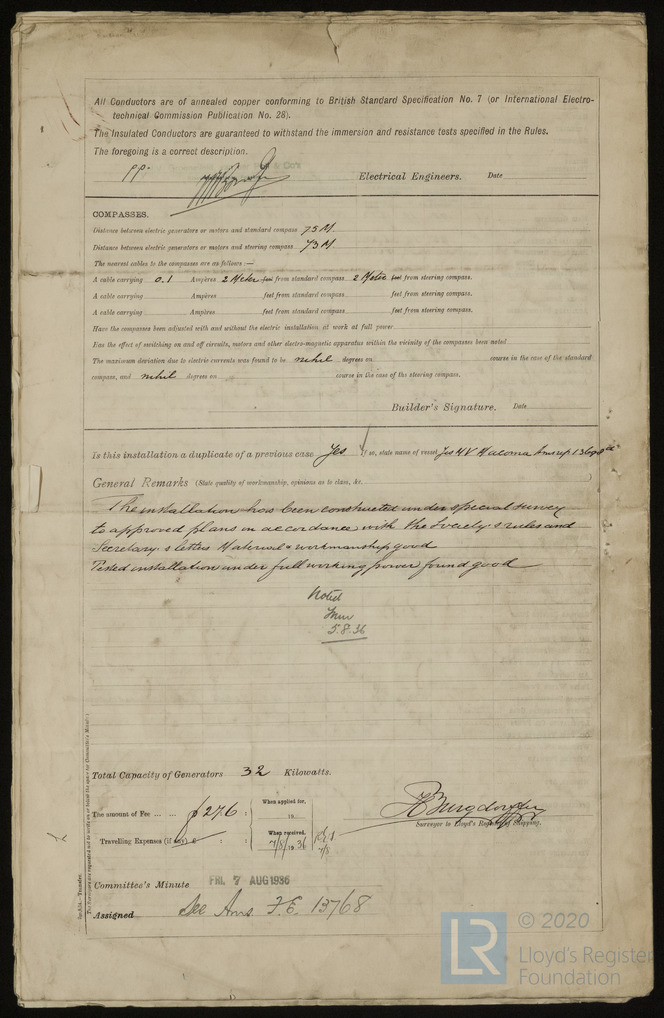 All Conductors are of annealed copper conforming to British Standard Specification No. 7 (or International Electro-
technical Commission Publication No. 28).
The Insulated Conductors are guaranteed to withstand the immersion and resistance tests specified in the Rules.
The foregoing is a correct description.
pp. Electrical Engineers. Date
COMPASSES.
Distance between electric generators or motors and standard compass 75 M.
Distance between electric generators or motors and steering compass 73 M
The nearest cables to the compasses are as follows :—
A cable carrying 0.1 Ampères 2 Meter feet from standard compass 2 Meter feet from steering compass.
A cable carrying Ampères feet from standard compass feet from steering compass.
A cable carrying Ampères feet from standard compass feet from steering compass.
Have the compasses been adjusted with and without the electric installation at work at full power
Has the effect of switching on and off circuits, motors and other electro-magnetic apparatus within the vicinity of the compasses been noted
The maximum deviation due to electric currents was found to be nihil degrees on course in the case of the standard
compass, and nihil degrees on course in the case of the steering compass.
Builder's Signature. Date
Is this installation a duplicate of a previous case Yes If so, state name of vessel Yes M V Macoma
General Remarks (State quality of workmanship, opinions as to class, &c.
The installation has been constructed under special survey
to approved plans in accordance with the Society's rules and
Secretary's letters Material & workmanship good
Tested installation under full working power found good
Noted
5.8.36
Total Capacity of Generators 32 Kilowatts.
The amount of Fee ... ... ƒ 276 : :
When applied for,
19
Travelling Expenses (if any) £ : :
When received,
7/8/1936
7/8
Surveyor to Lloyd's Register of Shipping.
Committee's Minute FRI. 7 AUG 1936
Assigned See Ams. F.E. 13768
5m,8.34.—Transfer.
The Surveyors are requested not to write on or below the space for Committee's Minute.
LR
© 2020
Lloyd's Register
Foundation